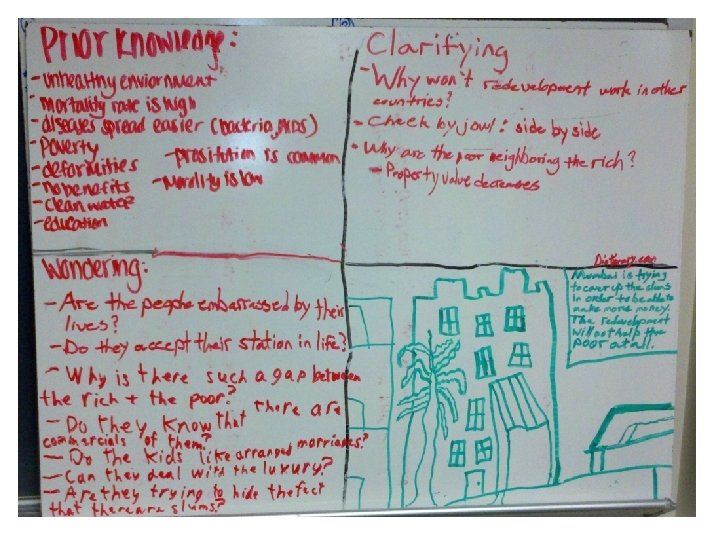 Prior Knowledge:
- unhealthy enviornment
- mortality rate is high
- diseases spread easier (bacteria, AIDS)
- Poverty
- deformities
- no benefits
- clean water?
- education
- prositution is common
- Morality is low
Clarifying
- Why won't redevelopment work in other
countries?
- Cheek by jowl: side by side
- Why are the poor neighboring the rich?
- Property value decreases
Wondering:
- Are the people embarrassed by their
lives?
- Do they accept their station in life?
- Why is there such a gap between
the rich + the poor?
- Do they know that there are
commercials of them?
- Do the kids like arranged marriages?
- Can they deal with the luxury?
- Are they trying to hide the fact
that there are slums?
Dictionary.com
Mumbai is trying
to cover up the slums
in order to be able to
make more money.
The redevelopment
will not help the
poor at all.